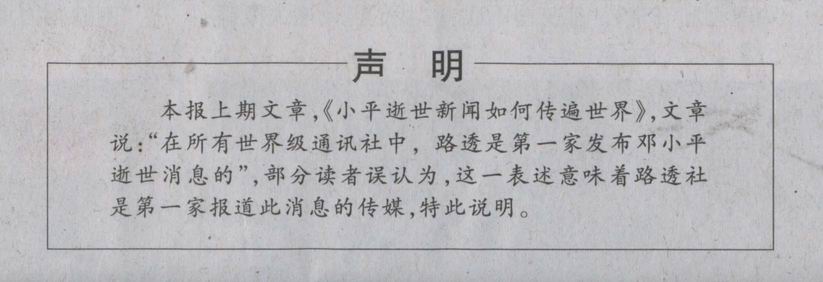 声 明
本报上期文章,《小平逝世新闻如何传遍世界》,文章
说:“在所有世界级通讯社中，路透是第一家发布邓小平
逝世消息的”,部分读者误认为,这一表述意味着路透社
是第一家报道此消息的传媒,特此说明。